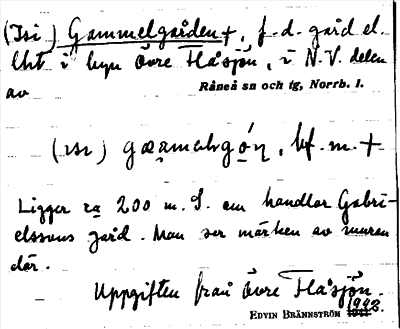 (Isi) Gammelgården +, f. d. gård el.
tkt i byn Övre Flåsjön, i N.V. delen
av Råneå sn och tg, Norrb. l.
(ısı) gœamelrgǫ́ṇ, bf. m. +
Ligger ca 200 m. S. om handlar Gabri-
elssons gård. Man ser märken av muren
där.
Uppgiften från Övre Flåsjön.
EDVIN BRÄNNSTRÖM 1943.